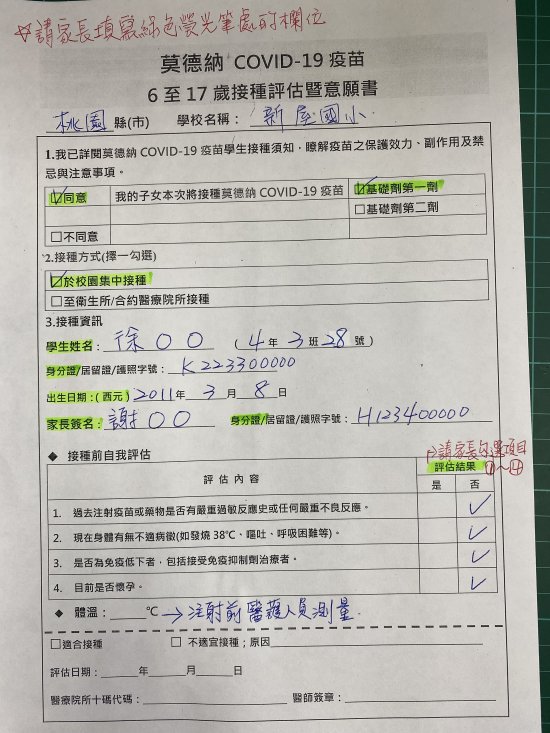 ☆請家長填寫綠色螢光筆處的欄位
莫德納 COVID-19 疫苗
6 至 17 歲接種評估暨意願書
桃園 縣(市) 學校名稱： 新屋國小
1.我已詳閱莫德納 COVID-19 疫苗學生接種須知，瞭解疫苗之保護效力、副作用及禁
忌與注意事項。
☑同意 我的子女本次將接種莫德納 COVID-19 疫苗 ☑基礎劑第一劑
□基礎劑第二劑
□不同意
2.接種方式(擇一勾選)
☑於校園集中接種
□至衛生所/合約醫療院所接種
3.接種資訊
學生姓名： 徐○○ ( 4 年 3 班 28 號 )
身分證/居留證/護照字號： K223300000
出生日期：( 西元 ) 2011 年 3 月 8 日
家長簽名： 謝○○ 身分證/居留證/護照字號： H123400000
◆ 接種前自我評估
請家長勾選項目
①~④
評估內容 評估結果
是 否
1. 過去注射疫苗或藥物是否有嚴重過敏反應史或任何嚴重不良反應。 ✓
2. 現在身體有無不適病徵(如發燒 38℃、嘔吐、呼吸困難等)。 ✓
3. 是否為免疫低下者，包括接受免疫抑制劑治療者。 ✓
4. 目前是否懷孕。 ✓
◆ 體溫：＿＿℃ → 注射前醫護人員測量
□適合接種 □ 不適宜接種；原因
評估日期： 年 月 日
醫療院所十碼代碼： 醫師簽章：